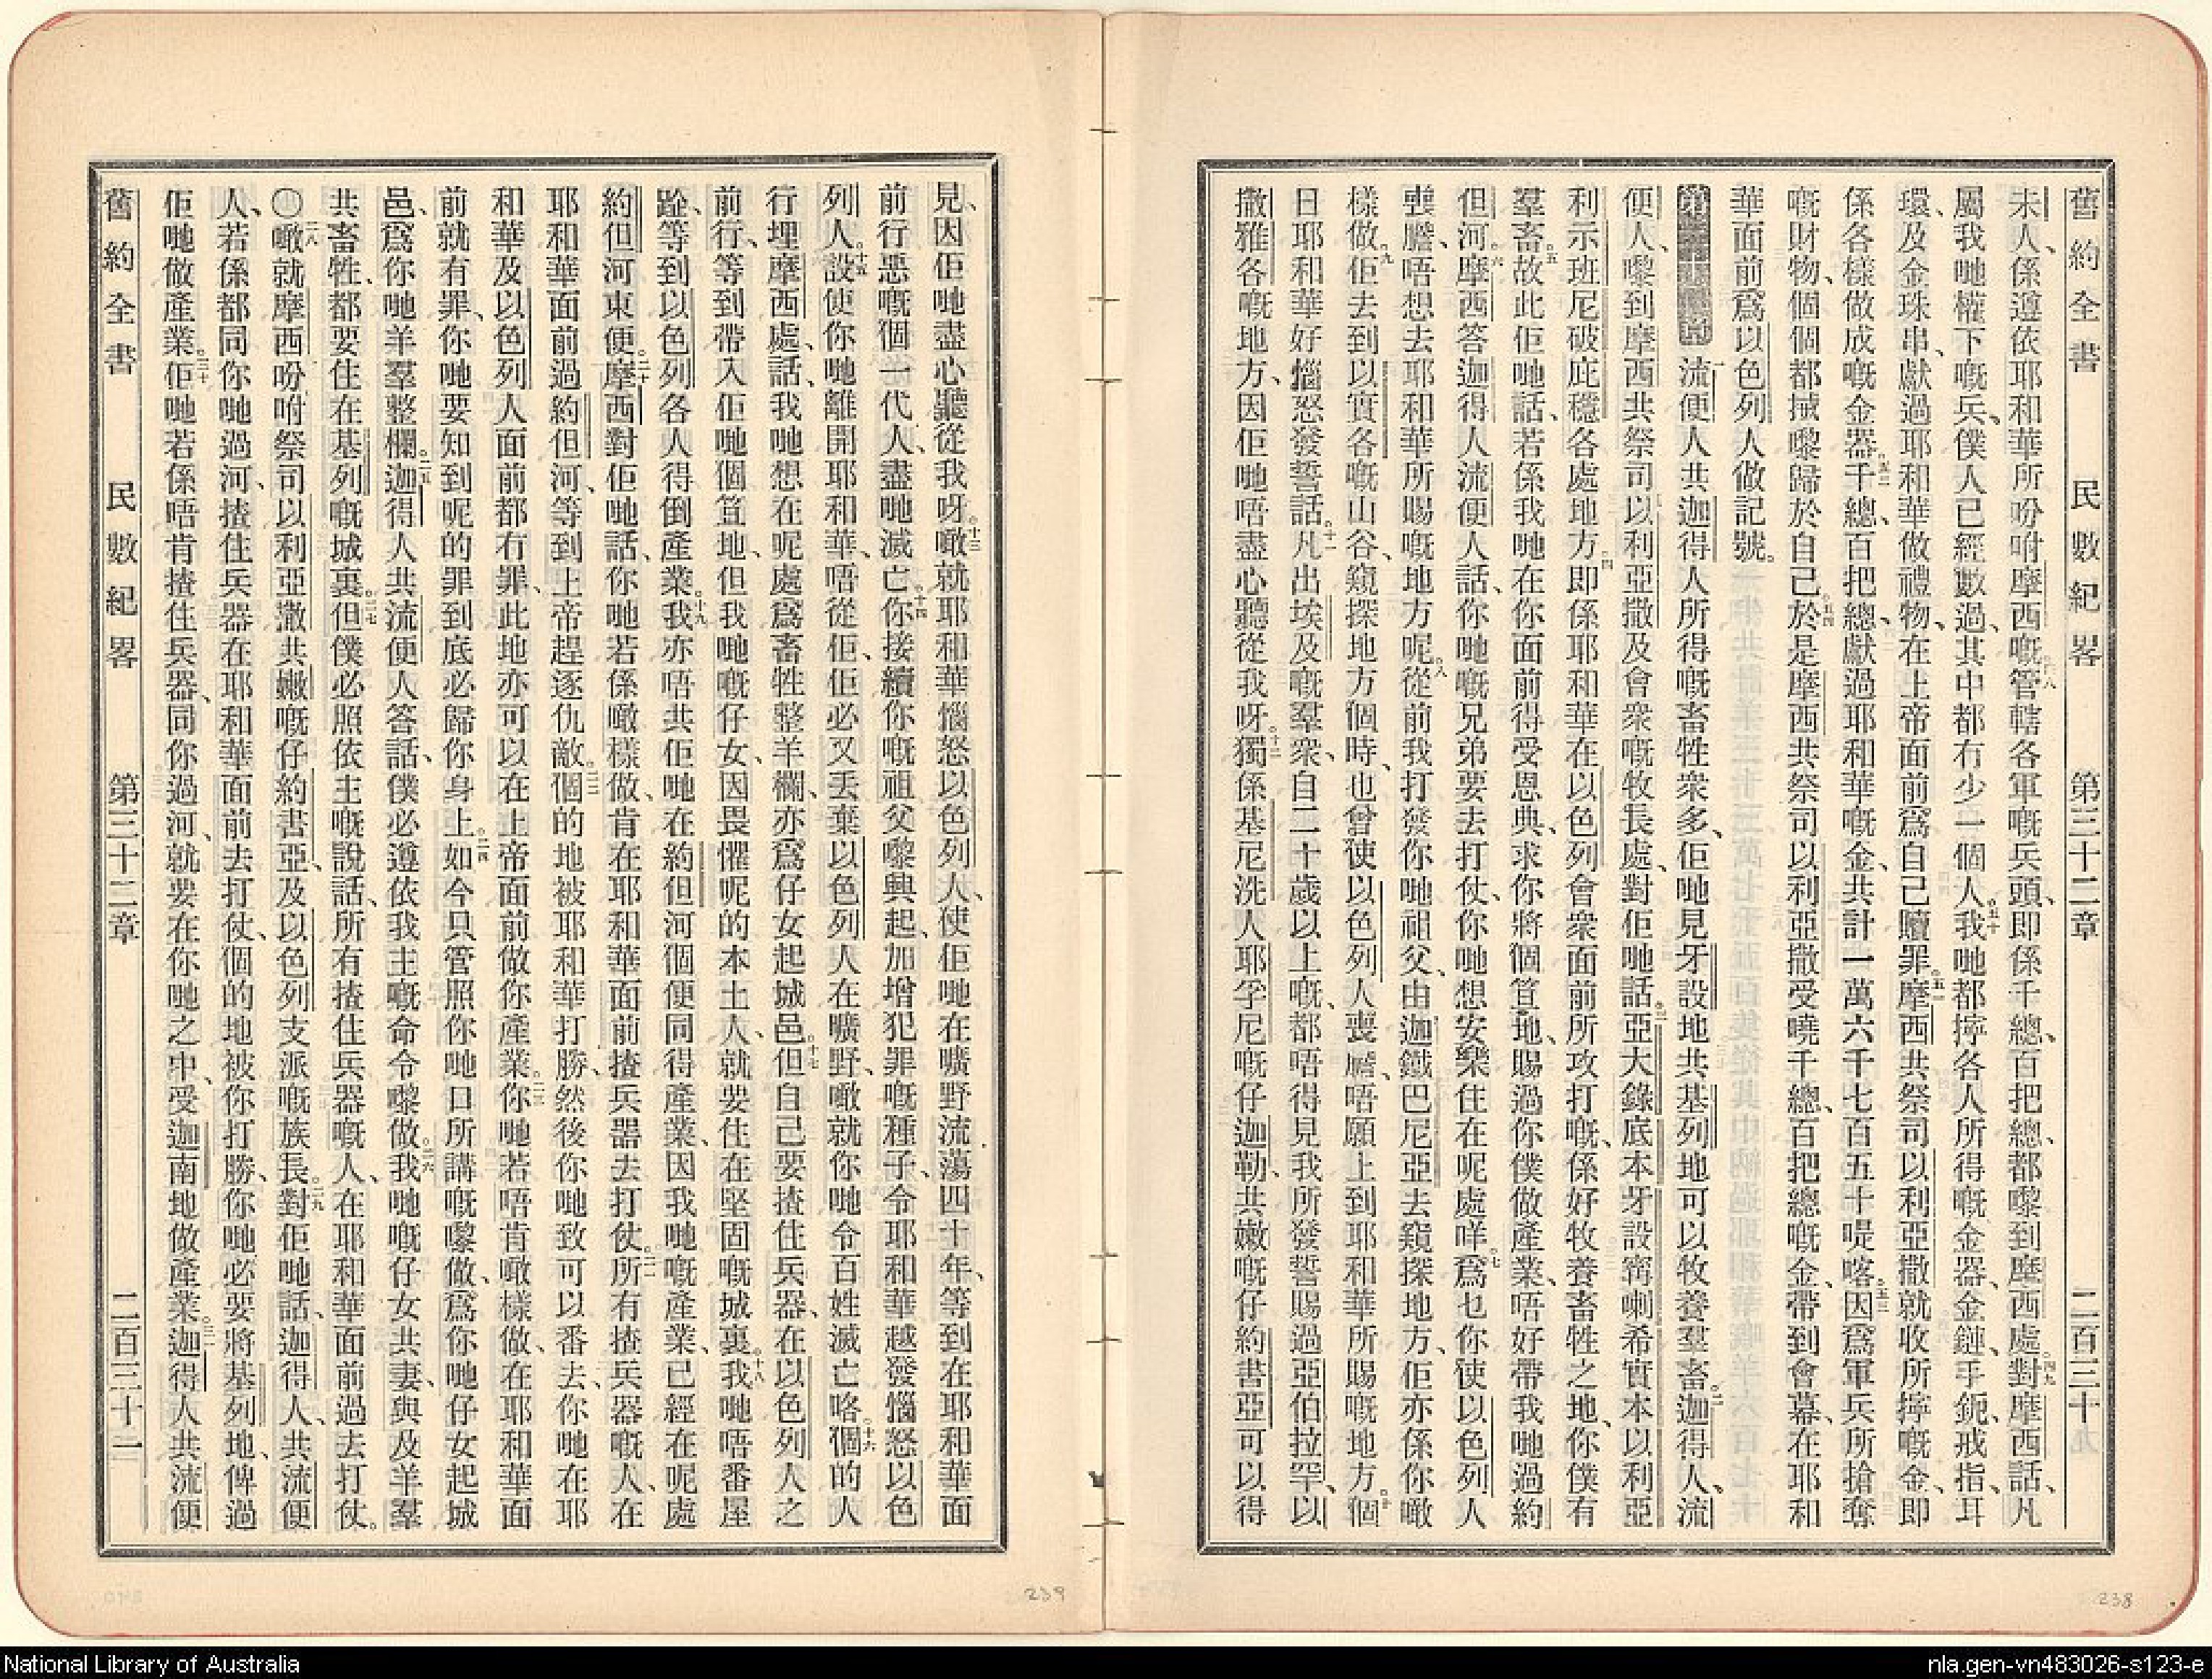 舊約全書 民數紀畧 第三十二章 二百三十九
未人、係遵依耶和華所吩咐摩西嘅管轄各軍嘅兵頭、即係千總、百把總、都嚟到摩西處。對摩西話、凡
屬我哋權下嘅兵、僕人已經數過、其中都冇少一個人。我哋都擰各人所得嘅金器、金鏈、手鈪、戒指、耳
環、及金珠串、獻過耶和華做禮物、在上帝面前爲自己贖罪。摩西共祭司以利亞撒就收所擰嘅金、即
係各樣做成嘅金器。千總、百把總、獻過耶和華嘅金、共計一萬六千七百五十㖷喀。因爲軍兵所搶奪
嘅財物、個個都㧜嚟歸於自己。於是摩西共祭司以利亞撒受曉千總、百把總嘅金、帶到會幕、在耶和
華面前爲以色列人做記號。
第三十二章 流便人共迦得人所得嘅畜牲衆多、佢哋見牙設地共基列地可以牧養羣畜。迦得人、流
便人、嚟到摩西共祭司以利亞撒及會衆嘅牧長處、對佢哋話。亞大錄底本牙設甯喇希實本以利亞
利示班尼破庇穩各處地方。即係耶和華在以色列會衆面前所攻打嘅、係好牧養畜牲之地、你僕有
羣畜。故此佢哋話、若係我哋在你面前得受恩典、求你將個笪地、賜過你僕做產業、唔好帶我哋過約
但河。摩西答迦得人流便人話、你哋嘅兄弟要去打仗、你哋想安樂住在呢處咩。爲乜你使以色列人
喪膽、唔想去耶和華所賜嘅地方呢。從前我打發你哋祖父、由迦鐵巴尼亞去窺探地方、佢亦係你噉
樣做。佢去到以實各嘅山谷、窺探地方個時、也曾使以色列人喪膽、唔願上到耶和華所賜嘅地方。個
日耶和華好惱怒發誓話。凡出埃及嘅羣衆、自二十歲以上嘅、都唔得見我所發誓賜過亞伯拉罕、以
撒雅各嘅地方、因佢哋唔盡心聽從我呀。獨係基尼洗人耶孚尼嘅仔迦勒、共嫩嘅仔約書亞可以得
見、因佢哋盡心聽從我呀。噉就耶和華惱怒以色列人、使佢哋在曠野流蕩四十年、等到在耶和華面
前行惡嘅個一代人、盡哋滅亡。你接續你嘅祖父嚟興起、加增犯罪嘅種子、令耶和華越發惱怒以色
列人。設使你哋離開耶和華、唔從佢、佢必又丟棄以色列人在曠野、噉就你哋令百姓滅亡咯。個的人
行埋摩西處、話、我哋想在呢處爲畜牲整羊欄、亦爲仔女起城邑。但自己要揸住兵器、在以色列人之
前行、等到帶入佢哋個笪地、但我哋嘅仔女、因畏懼呢的本土人、就要住在堅固嘅城裏。我哋唔番屋
跧等到以色列各人得倒產業。我亦唔共佢哋在約但河個便同得產業、因我哋嘅產業、已經在呢處
約但河東便。摩西對佢哋話、你哋若係噉樣做、肯在耶和華面前揸兵器去打仗。所有揸兵器嘅人、在
耶和華面前過約但河、等到上帝趕逐仇敵。個的地被耶和華打勝、然後你哋致可以番去、你哋在耶
和華及以色列人面前都冇罪、此地亦可以在上帝面前做你產業。你哋若唔肯噉樣做、在耶和華面
前就有罪、你哋要知到呢的罪到底必歸你身上。如今只管照你哋口所講嘅嚟做、爲你哋仔女起城
邑、爲你哋羊羣整欄。迦得人共流便人答話、僕必遵依我主嘅命令嚟做。我哋嘅仔女共妻、與及羊羣
共畜牲、都要住在基列嘅城裏。但僕必照依主嘅說話、所有揸住兵器嘅人、在耶和華面前過去打仗。
〇噉就摩西吩咐祭司以利亞撒共嫩嘅仔約書亞、及以色列支派嘅族長。對佢哋話、迦得人、共流便
人、若係都同你哋過河、揸住兵器在耶和華面前去打仗、個的地被你打勝、你哋必要將基列地、俾過
佢哋做產業。佢哋若係唔肯揸住兵器、同你過河、就要在你哋之中、受迦南地做產業。迦得人共流便
舊約全書 民數紀畧 第三十二章 二百三十一
239
238
National Library of Australia
nla.gen-vn483026-s123-e